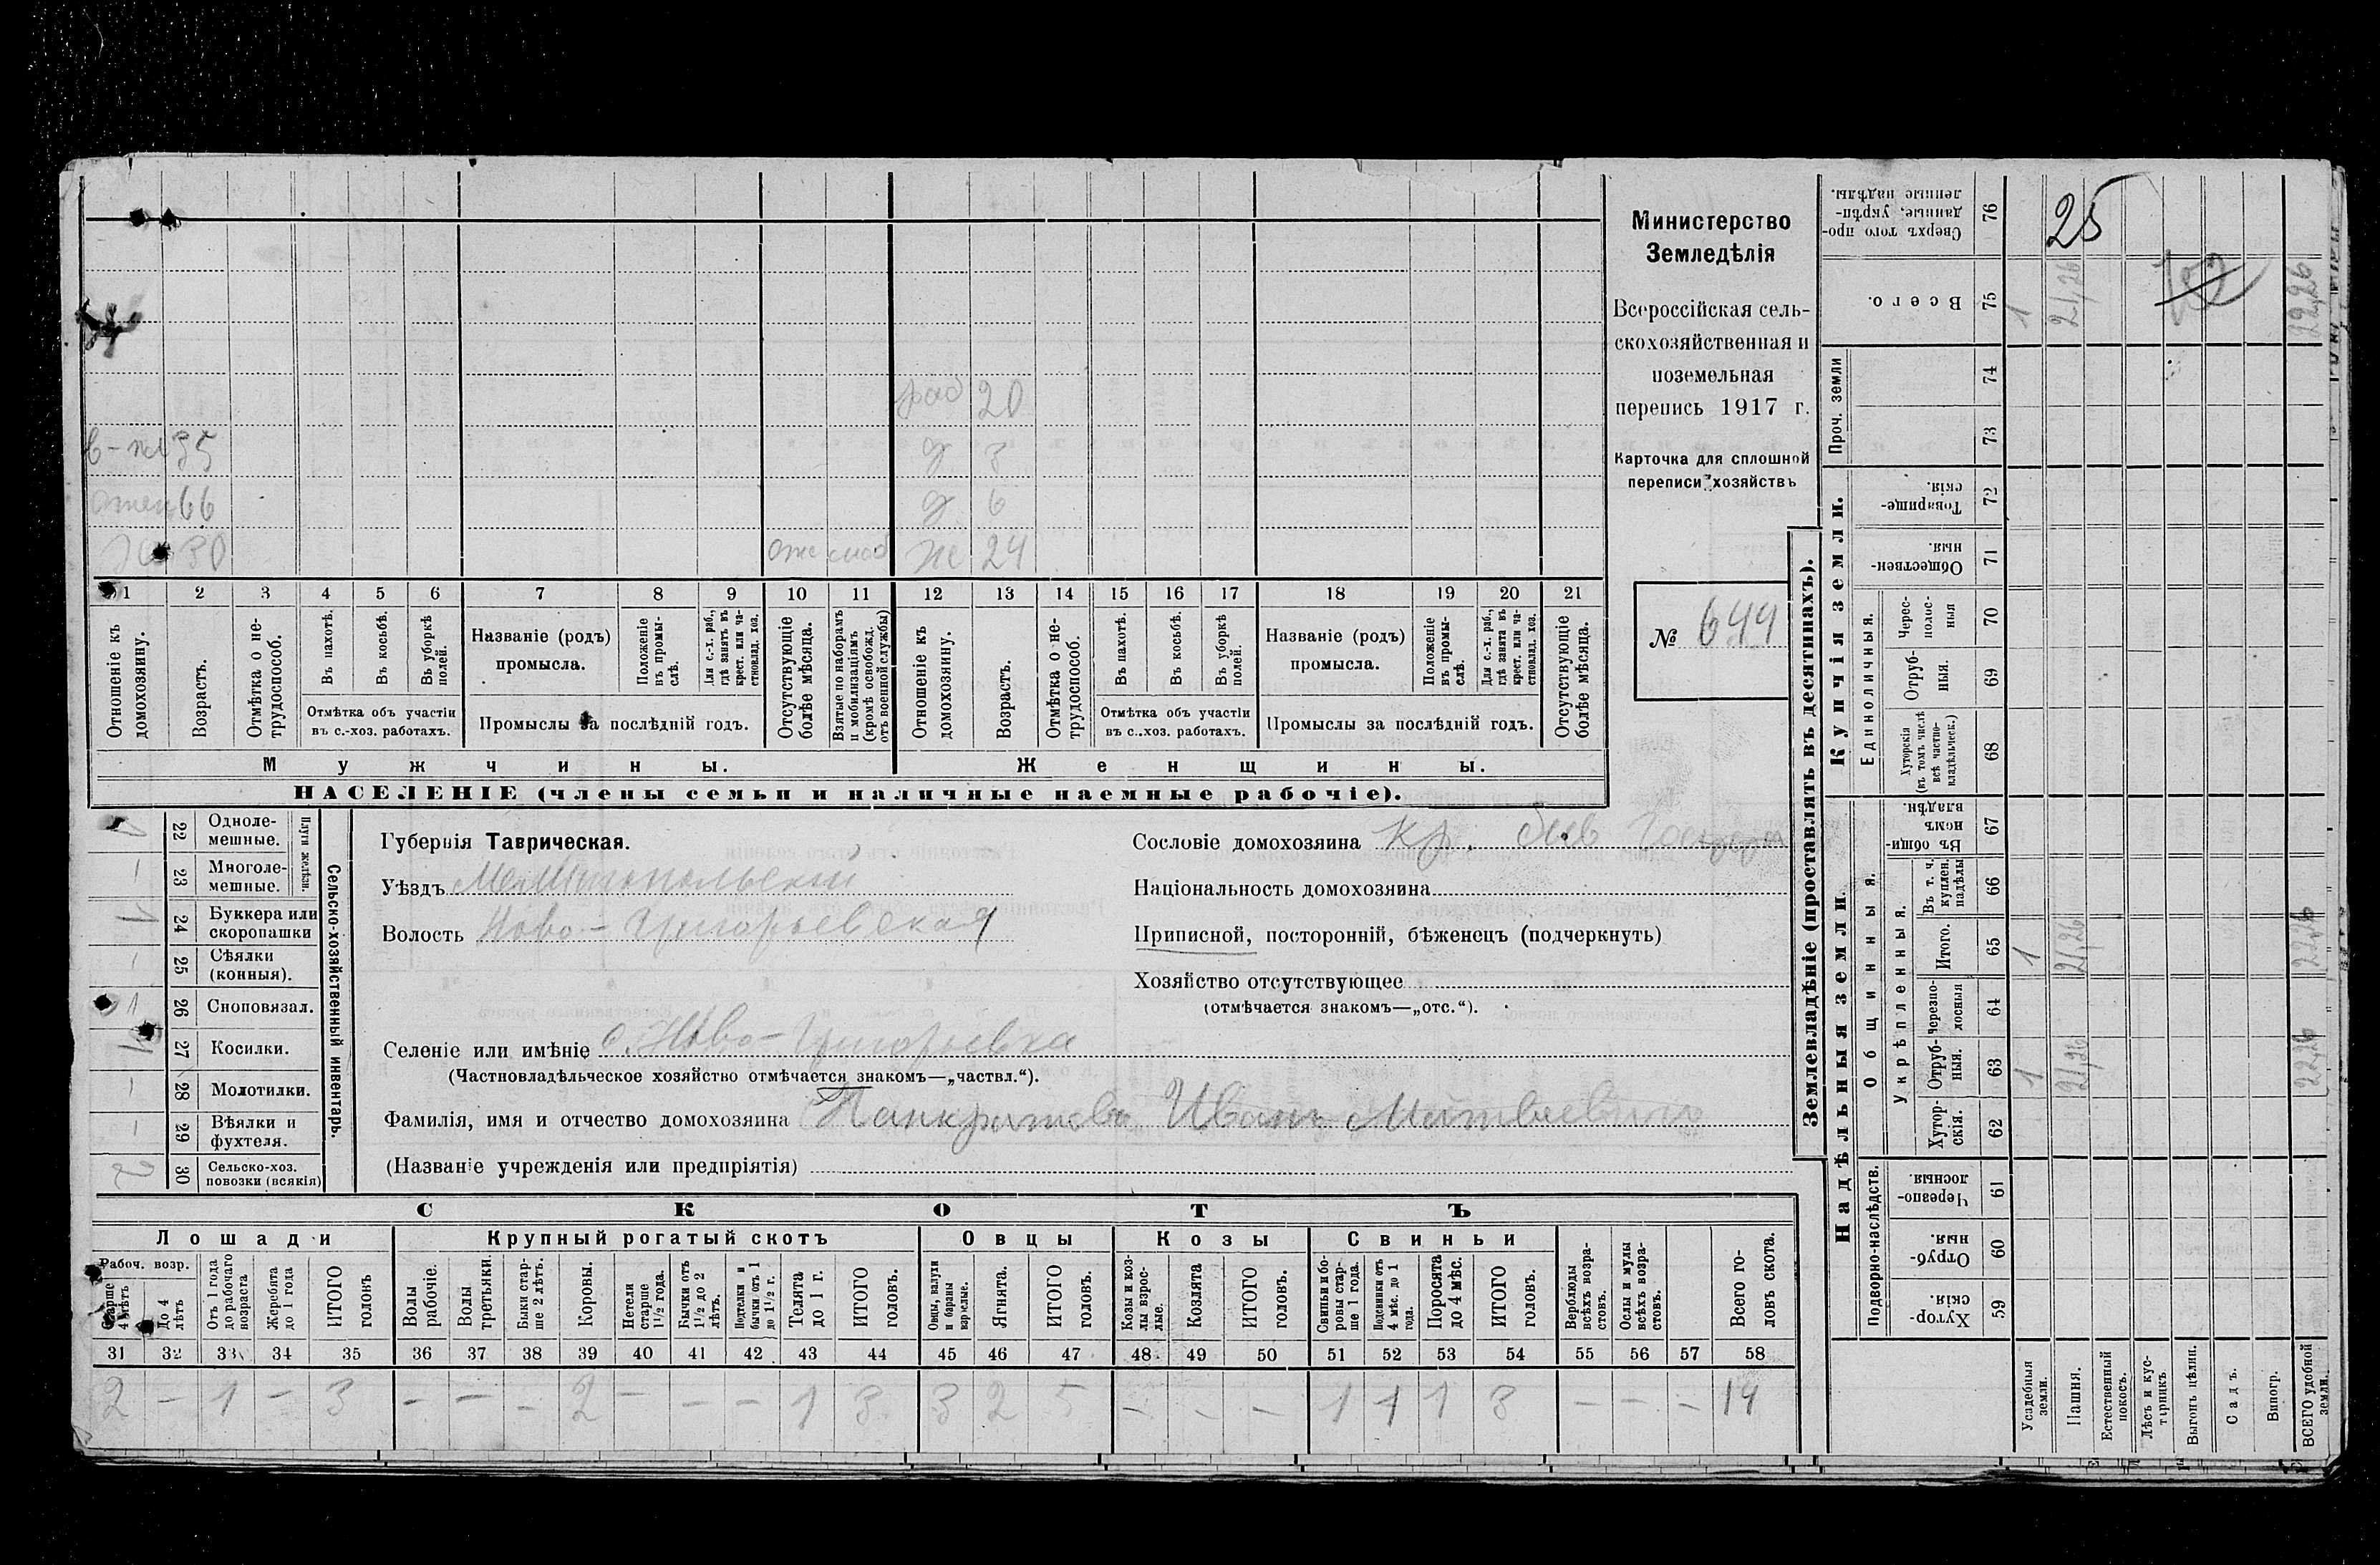 раб 20
в-пл 35 д 3
отец 66 д 6
Х 30 ж 24
1 2 3 4 5 6 7 8 9 10 11 12 13 14 15 16 17 18 19 20 21
Отношеніе къ домохозяину.
Возрастъ.
Отмѣтка о не-трудоспособ.
Въ пахотѣ.
Въ косьбѣ.
Въ уборкѣ полей.
Отмѣтка объ участіи
въ с.-хоз. работахъ.
Названіе (родъ)
промысла.
Положеніе въ промы-слѣ.
Для с.-х. раб., гдѣ занятъ въ крест. или ча-стновлад. хоз.
Промыслы за послѣдній годъ.
Отсутствующіе болѣе мѣсяца.
Взятые по наборамъ и мобилизаціямъ (кромѣ освобожд. отъ военной службы)
Отношеніе къ домохозяину.
Возрастъ.
Отмѣтка о не-трудоспособ.
Въ пахотѣ.
Въ косьбѣ.
Въ уборкѣ полей.
Отмѣтка объ участіи
въ с.-хоз. работахъ.
Названіе (родъ)
промысла.
Положеніе въ промы-слѣ.
Для с.-х. раб., гдѣ занята въ крест. или ча-стновлад. хоз.
Промыслы за послѣдній годъ.
Отсутствующіе болѣе мѣсяца.
Мужчины. Женщины.
НАСЕЛЕНІЕ (члены семьи и наличные наемные рабочіе).
Министерство
Земледѣлія
Всероссійская сель-
скохозяйственная и
поземельная
перепись 1917 г.
Карточка для сплошной
переписи хозяйствъ
№ 644
Сельско-хозяйственный инвентарь.
Плуги желѣзн.
22 Одноле-
мешные.
— 23 Многоле-
мешные.
1 24 Буккера или
скоропашки
— 25 Сѣялки
(конныя).
1 26 Сноповязал.
27 Косилки.
— 28 Молотилки.
— 29 Вѣялки и
фухтеля.
2 30 Сельско-хоз.
повозки (всякія)
Губернія Таврическая.
Уѣздъ Мелитопольскій
Волость Ново-Григорьевская
Сословіе домохозяина Кр. быв
Національность домохозяина
Приписной, посторонній, бѣженецъ (подчеркнуть)
Хозяйство отсутствующее
(отмѣчается знакомъ—„отс.“).
Селеніе или имѣніе с. Ново-Григорьевка
(Частновладѣльческое хозяйство отмѣчается знакомъ—„частвл.“).
Фамилія, имя и отчество домохозяина Панкратовъ Иванъ Матвеевичъ
(Названіе учрежденія или предпріятія)
СКОТЪ
Лошади Крупный рогатый скотъ Овцы Козы Свиньи
Рабоч. возр.
Старше 4 лѣтъ
До 4 лѣтъ
Отъ 1 года до рабочаго возраста
Жеребята до 1 года
ИТОГО головъ
Волы рабочіе.
Волы третьяки.
Быки стар-ше 2 лѣтъ.
Коровы.
Нетели старше 1½ года.
Бычки отъ 1½ до 2 лѣтъ.
Нетелки и бычки отъ 1 до 1½ г.
Телята до 1 г.
ИТОГО головъ.
Овцы, валухи и бараны взрослые.
Ягнята.
ИТОГО головъ.
Козы и коз-лы взрос-лые.
Козлята
ИТОГО головъ.
Свиньи и бо-ровы стар-ше 1 года.
Подсвинки отъ 4 мѣс. до 1 года.
Поросята до 4 мѣс.
ИТОГО головъ.
Верблюды всѣхъ возра-стовъ.
Ослы и мулы всѣхъ возра-стовъ.
Всего го-ловъ скота.
31 32 33 34 35 36 37 38 39 40 41 42 43 44 45 46 47 48 49 50 51 52 53 54 55 56 57 58
2 — 1 — 3 — — — 2 — — — 1 3 3 2 5 — — — 1 1 1 3 — — — 14
Землевладѣніе (проставлять въ десятинахъ).
Надѣльныя земли. Купчія земли. Проч. земли
Подворно-наслѣдств. Общинныя. Единоличныя.
Укрѣпленныя.
Хутор-скія. 59
Отруб-ныя. 60
Черезпо-лосныя 61
Хутор-скія. 62
Отруб-ныя. 63 1 21,26 22,26
Черезпо-лосныя 64
Итого. 65 1 21,26 22,26
Въ т. ч. куплен. надѣлы 66
Въ общи-номъ владѣн. 67
Хуторскія (въ томъ числѣ всѣ частно-владѣльческ.) 68
Отруб-ныя. 69
Черес-полос-ныя 70
Обществен-ныя. 71
Товарище-скія. 72
73
74
Всего. 75 1 21,26 22,26
Сверхъ того про-данные, укрѣп-ленные надѣлы. 76
25
Усадебныя земли.
Пашня.
Естественный покосъ.
Лѣсъ и кус-тарникъ
Выгонъ цѣлин.
Садъ.
Виногр.
ВСЕГО удобной земли.